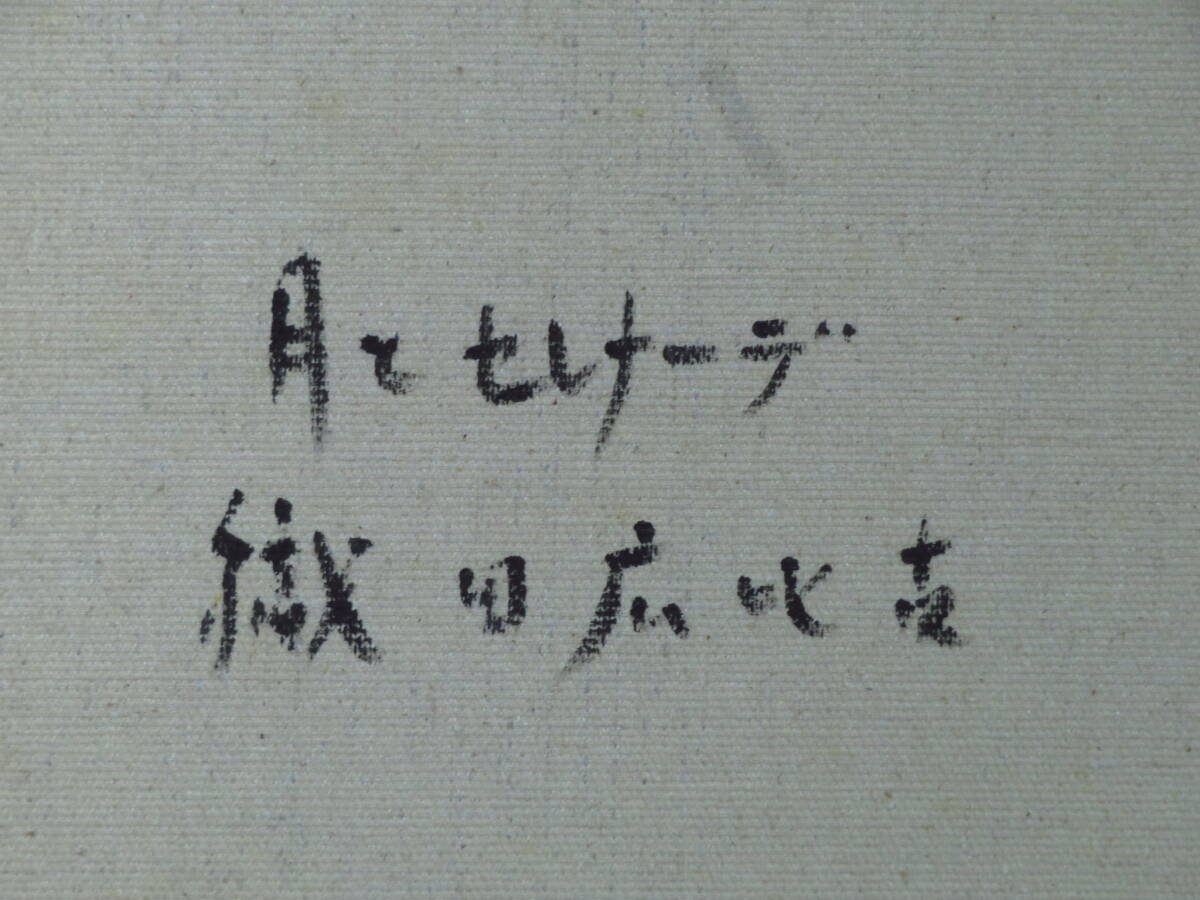 月とセレナーデ
織田広比古